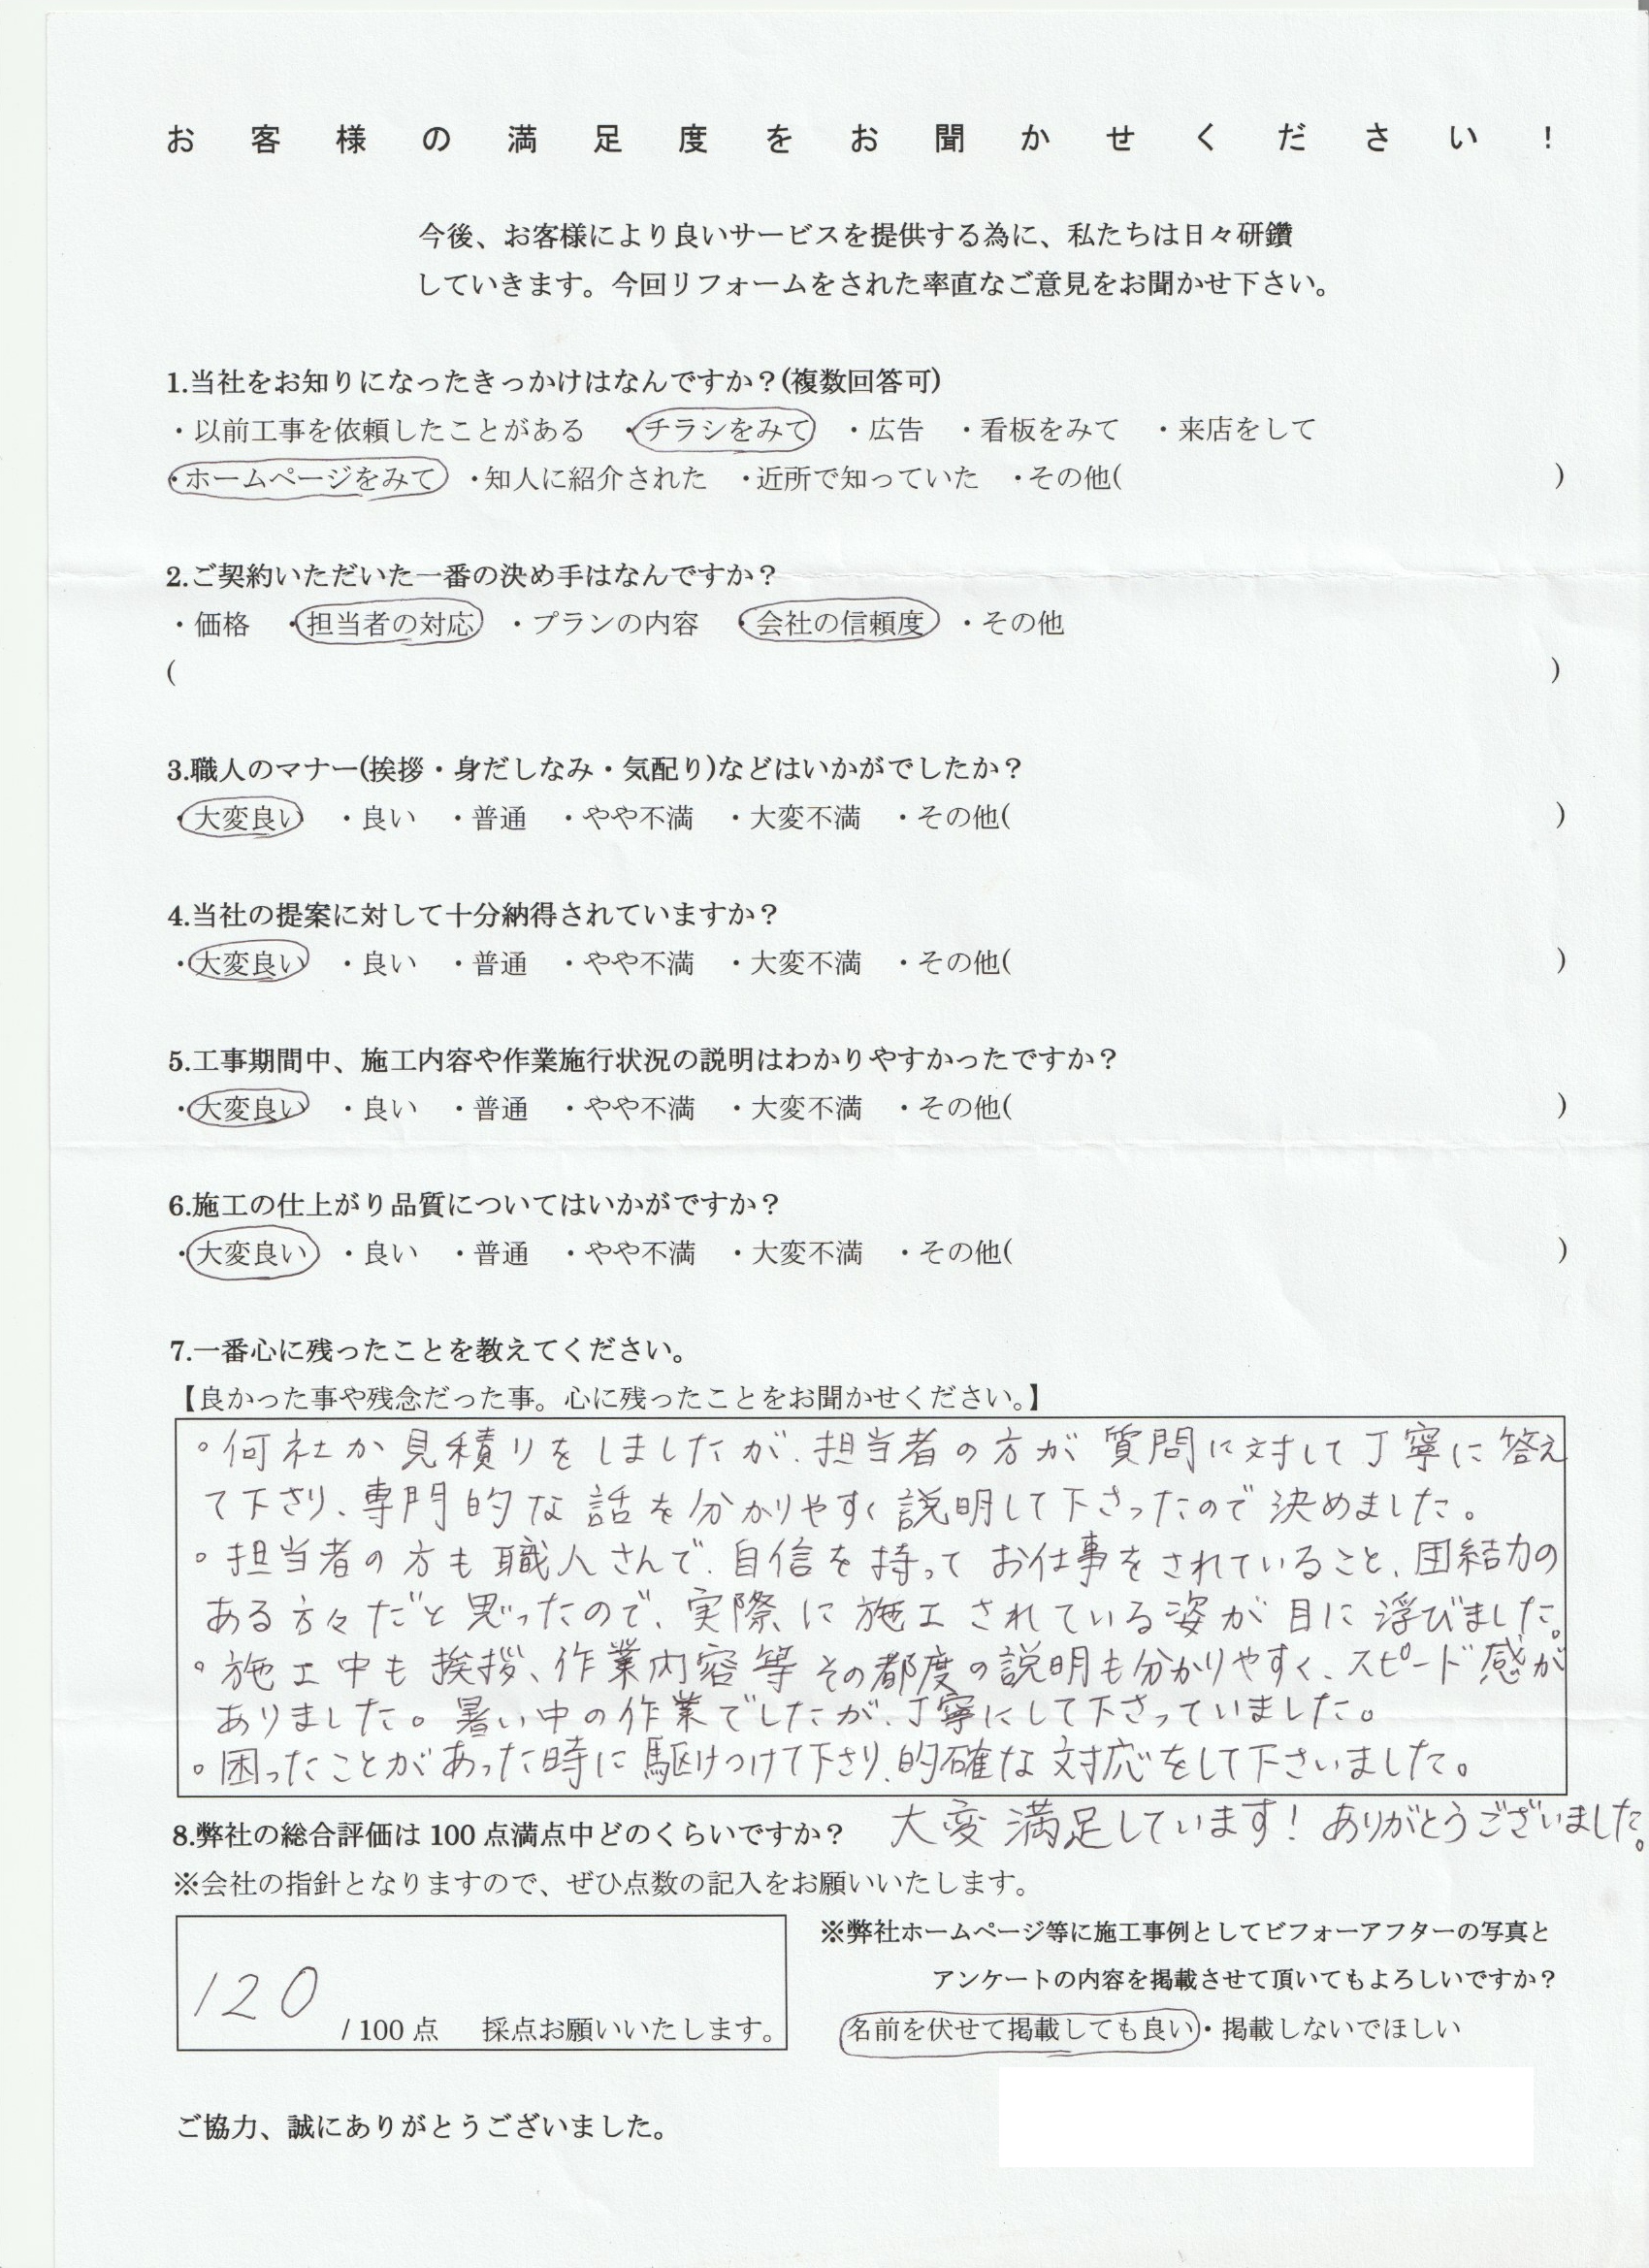 お客様の満足度をお聞かせください！
今後、お客様により良いサービスを提供する為に、私たちは日々研鑽
していきます。今回リフォームをされた率直なご意見をお聞かせ下さい。
1.当社をお知りになったきっかけはなんですか？(複数回答可)
・以前工事を依頼したことがある ・チラシをみて ・広告 ・看板をみて ・来店をして
・ホームページをみて ・知人に紹介された ・近所で知っていた ・その他( )
2.ご契約いただいた一番の決め手はなんですか？
・価格 ・担当者の対応 ・プランの内容 ・会社の信頼度 ・その他
( )
3.職人のマナー(挨拶・身だしなみ・気配り)などはいかがでしたか？
・大変良い ・良い ・普通 ・やや不満 ・大変不満 ・その他( )
4.当社の提案に対して十分納得されていますか？
・大変良い ・良い ・普通 ・やや不満 ・大変不満 ・その他( )
5.工事期間中、施工内容や作業施行状況の説明はわかりやすかったですか？
・大変良い ・良い ・普通 ・やや不満 ・大変不満 ・その他( )
6.施工の仕上がり品質についてはいかがですか？
・大変良い ・良い ・普通 ・やや不満 ・大変不満 ・その他( )
7.一番心に残ったことを教えてください。
【良かった事や残念だった事。心に残ったことをお聞かせください。】
。何社か見積りをしましたが、担当者の方が質問に対して丁寧に答え
て下さり、専門的な話を分かりやすく説明して下さったので決めました。
。担当者の方も職人さんで、自信を持ってお仕事をされていること、団結力の
ある方々だと思ったので、実際に施工されている姿が目に浮びました。
。施工中も挨拶、作業内容等その都度の説明も分かりやすく、スピード感が
ありました。暑い中の作業でしたが、丁寧にして下さっていました。
。困ったことがあった時に駆けつけて下さり、的確な対応をして下さいました。
大変満足しています！ありがとうございました。
8.弊社の総合評価は 100 点満点中どのくらいですか？
※会社の指針となりますので、ぜひ点数の記入をお願いいたします。
120 / 100 点 採点お願いいたします。
※弊社ホームページ等に施工事例としてビフォーアフターの写真と
アンケートの内容を掲載させて頂いてもよろしいですか？
名前を伏せて掲載しても良い・掲載しないでほしい
ご協力、誠にありがとうございました。